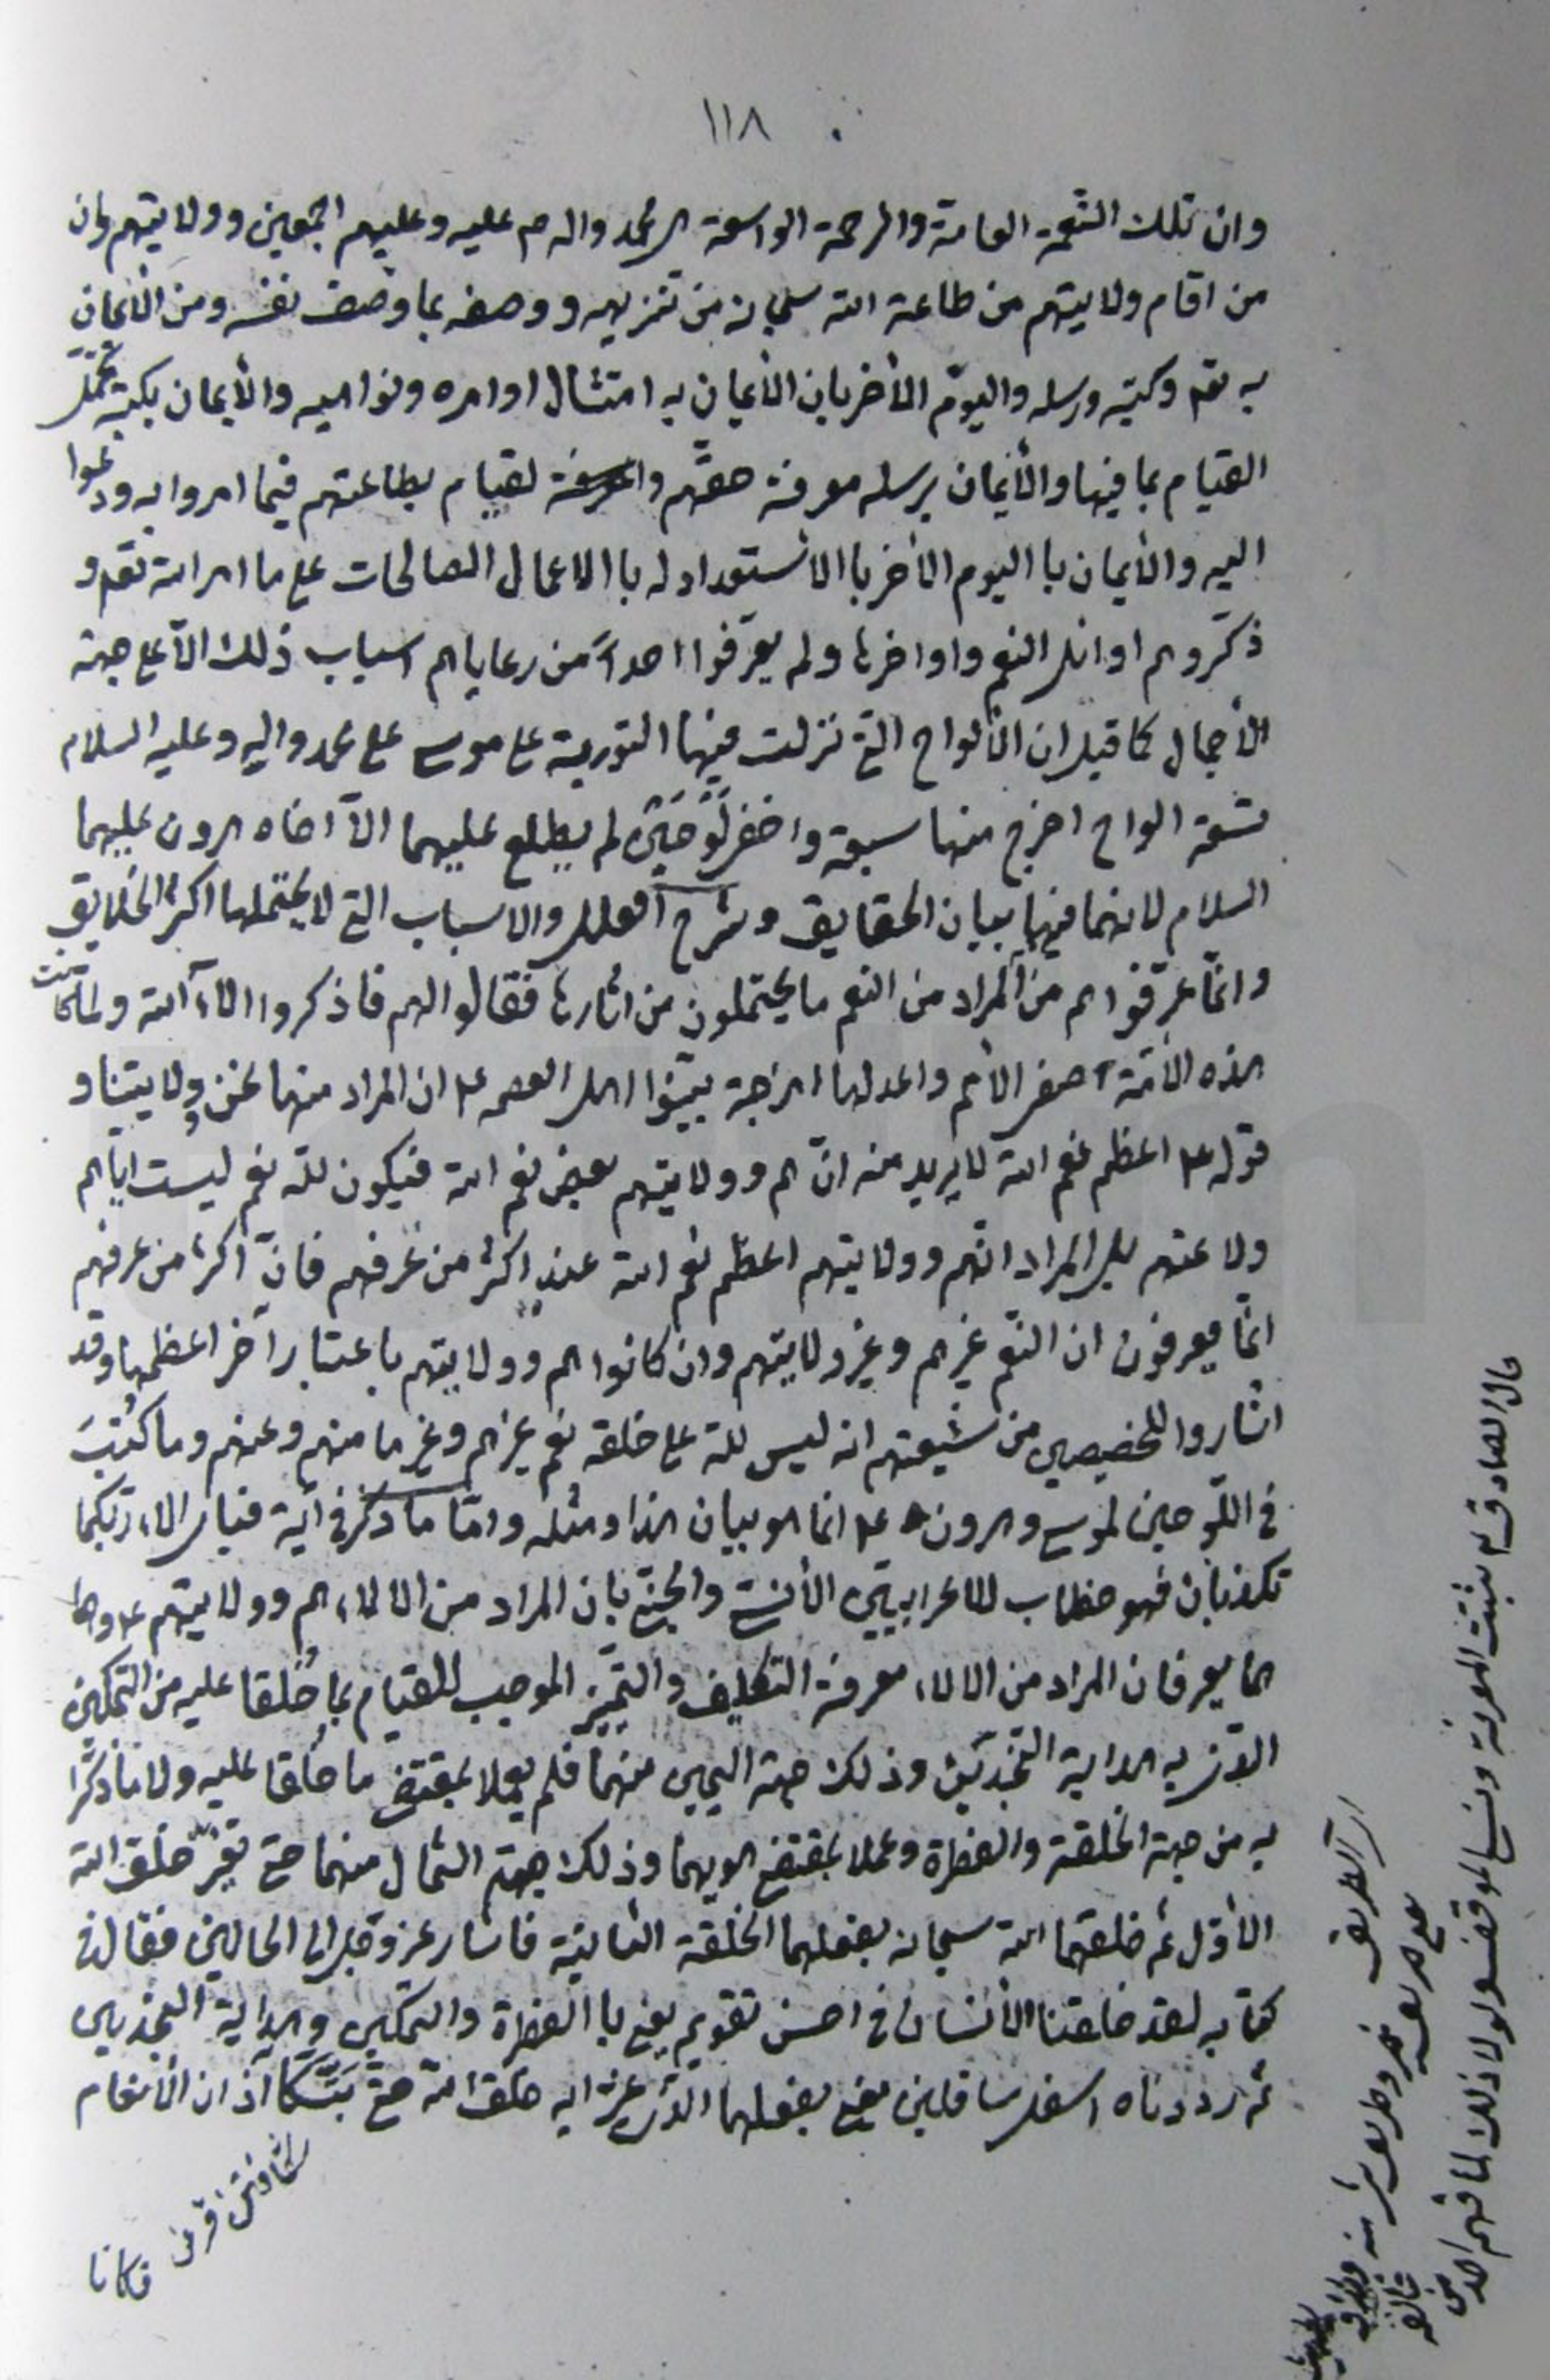 ١١٨
وان تلك النعمة العامة والرحمة الواسعة هى محمد واله ص عليه وعليهم اجمعين وولايتهم وان
من اقام ولايتهم من طاعة الله سبحانه من تنزيهه ووصفه بما وصف نفسه ومن الأيمان
به تعم وكتبه ورسله واليوم الأخر بان الأيمان به امتثال اوامره ونواهيه والأيمان بكتبه تحمّل
القيام بما فيها والأيمان برسله معرفة حقّهم والمعرفة لقيام بطاعتهم فيما امروا به ودعوا
اليه والأيمان با اليوم الأخر با الأستعداد له با الاعمال الصالحات على ما امر الله تعم و
ذكّروهم اوائل النعم واواخرها ولم يعرّفوا احداً من رعاياهم اسباب ذلك الّا على جهة
الأجمال كما قيل ان الألواح التى نزلت فيها التورية على موسى على محمد واله وعليه السلام
تسعة الواح اخرج منها سبعة واخفى لوحين لم يطلع عليهما الّا اخاه هرون عليهما
السلام لانهما فيهما بيان الحقايق وشرح العلل والاسباب التى لا يحتملها اكثر الخلايق
وانّما عرّفوهم من المراد من النعم ما يحتملون من اثارها فقالوا لهم فاذكروا الاء الله ولما كانت
هذه الأمّة اصفى الأمم واعدلها امزجة بيّنوا اهل العصمه ع ان المراد منها نحن وولايتنا و
قوله ع اعظم نعم الله لا يريد منه انّهم وولايتهم بعض نعم الله فيكون لله نعم ليست اياهم
ولا عنهم بل المراد انّهم وولايتهم اعظم نعم الله عند اكثر من عرفهم فانّ اكثر من عرفهم
انّما يعرفون ان النعم غيرهم وغير ولايتهم وان كانوا هم وولايتهم باعتبار آخر اعظمها وقد
اشاروا للخصيصين من شيعتهم انه ليس لله على خلقه نعم غيرهم وغير ما منهم وعنهم وما كُتبَ
فى اللّوحين لموسى وهرون ع انما هو بيان هذا ومثله وامّا ما ذكر فى آية فباى الاء ربّكما
تكذبان فهو خطاب للاعرابيين الأنسىّ والجنىّ بان المراد من الالاء هم وولايتهم ع وهما
هما يعرفان المراد من الالاء معرفة التكليف والتّميز الموجب للقيام بما خُلقا عليه من التمكين
الذى به هداية النّجدين وذلك جهة اليمين منهما فلم يعملا بمقتضى ما خُلقا عليه ولا ما ذكّرا
به من جهة الخلقة والفطرة وعملا بمقتضى هويهما وذلك جهة الشمال منهما حتى تغيّر خلق الله
الأوّل ثم خلقهما الله سبحانه بفعلهما الخلقة الثانية فاشار عز وجل الى الحالين فقال فى
كتابه لقد خلقنا الأنسان فى احسن تقويم يعنى با الفطرة والتمكين وهداية النجدين
ثم رددناه اسفل سافلين يعنى بفعلهما الّذى غيّرا به خلق الله حتى بتّكا آذان الأنعام
فكانا
قال الصادق ع تثبت المعرفة ونسوا الموقف ولولا ذلك لما فهم احد من